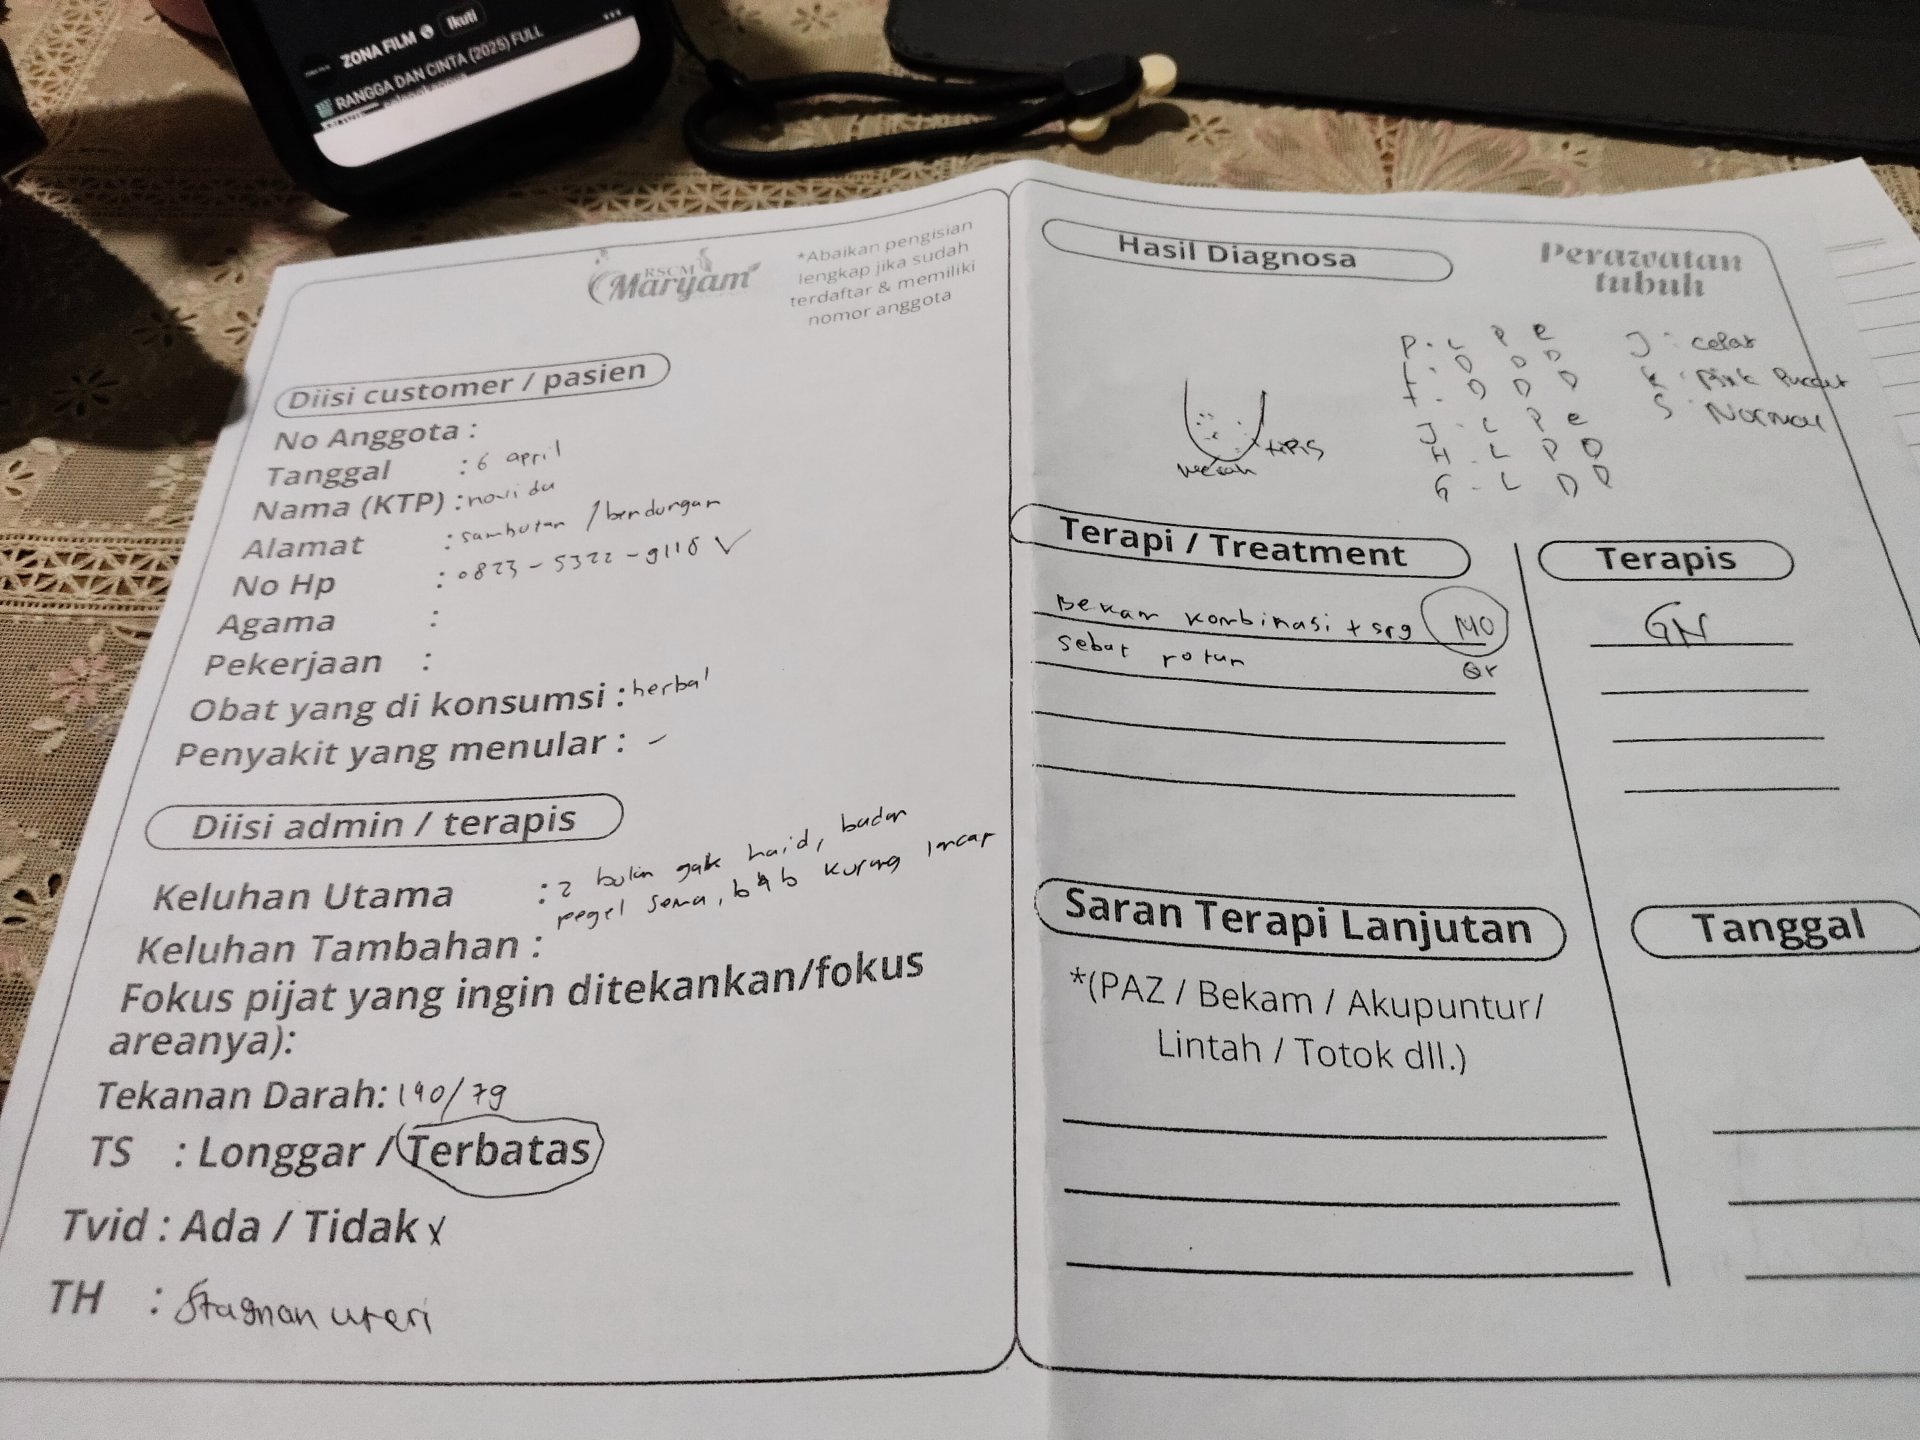 ZONA FILM
Ikuti
RANGGA DAN CINTA (2025) FULL
RSCM
Maryam
*Abaikan pengisian
lengkap jika sudah
terdaftar & memiliki
nomor anggota
Diisi customer / pasien
No Anggota :
Tanggal : 6 april
Nama (KTP) : novi
Alamat : sambutan / bendungan
No Hp : 0823-5322-9116 ✓
Agama :
Pekerjaan :
Obat yang di konsumsi : herbal
Penyakit yang menular : -
Diisi admin / terapis
Keluhan Utama : 2 bulan gak haid, badan
pegel semua, bab kurang lancar
Keluhan Tambahan :
Fokus pijat yang ingin ditekankan/fokus
areanya):
Tekanan Darah: 140/79
TS : Longgar / Terbatas
Tvid : Ada / Tidak x
TH : Stagnan uteri
Hasil Diagnosa
Perawatan
tubuh
P. L P E
L. D D D
t. D D D
J. L P E
H. L P D
G. L D D
J : cepat
K : Pink Pucat
S : Normal
merah
tipis
Terapi / Treatment
Bekam kombinasi + srg 140
sebat rotan
Qr
Terapis
GN
Saran Terapi Lanjutan
*(PAZ / Bekam / Akupuntur/
Lintah / Totok dll.)
Tanggal